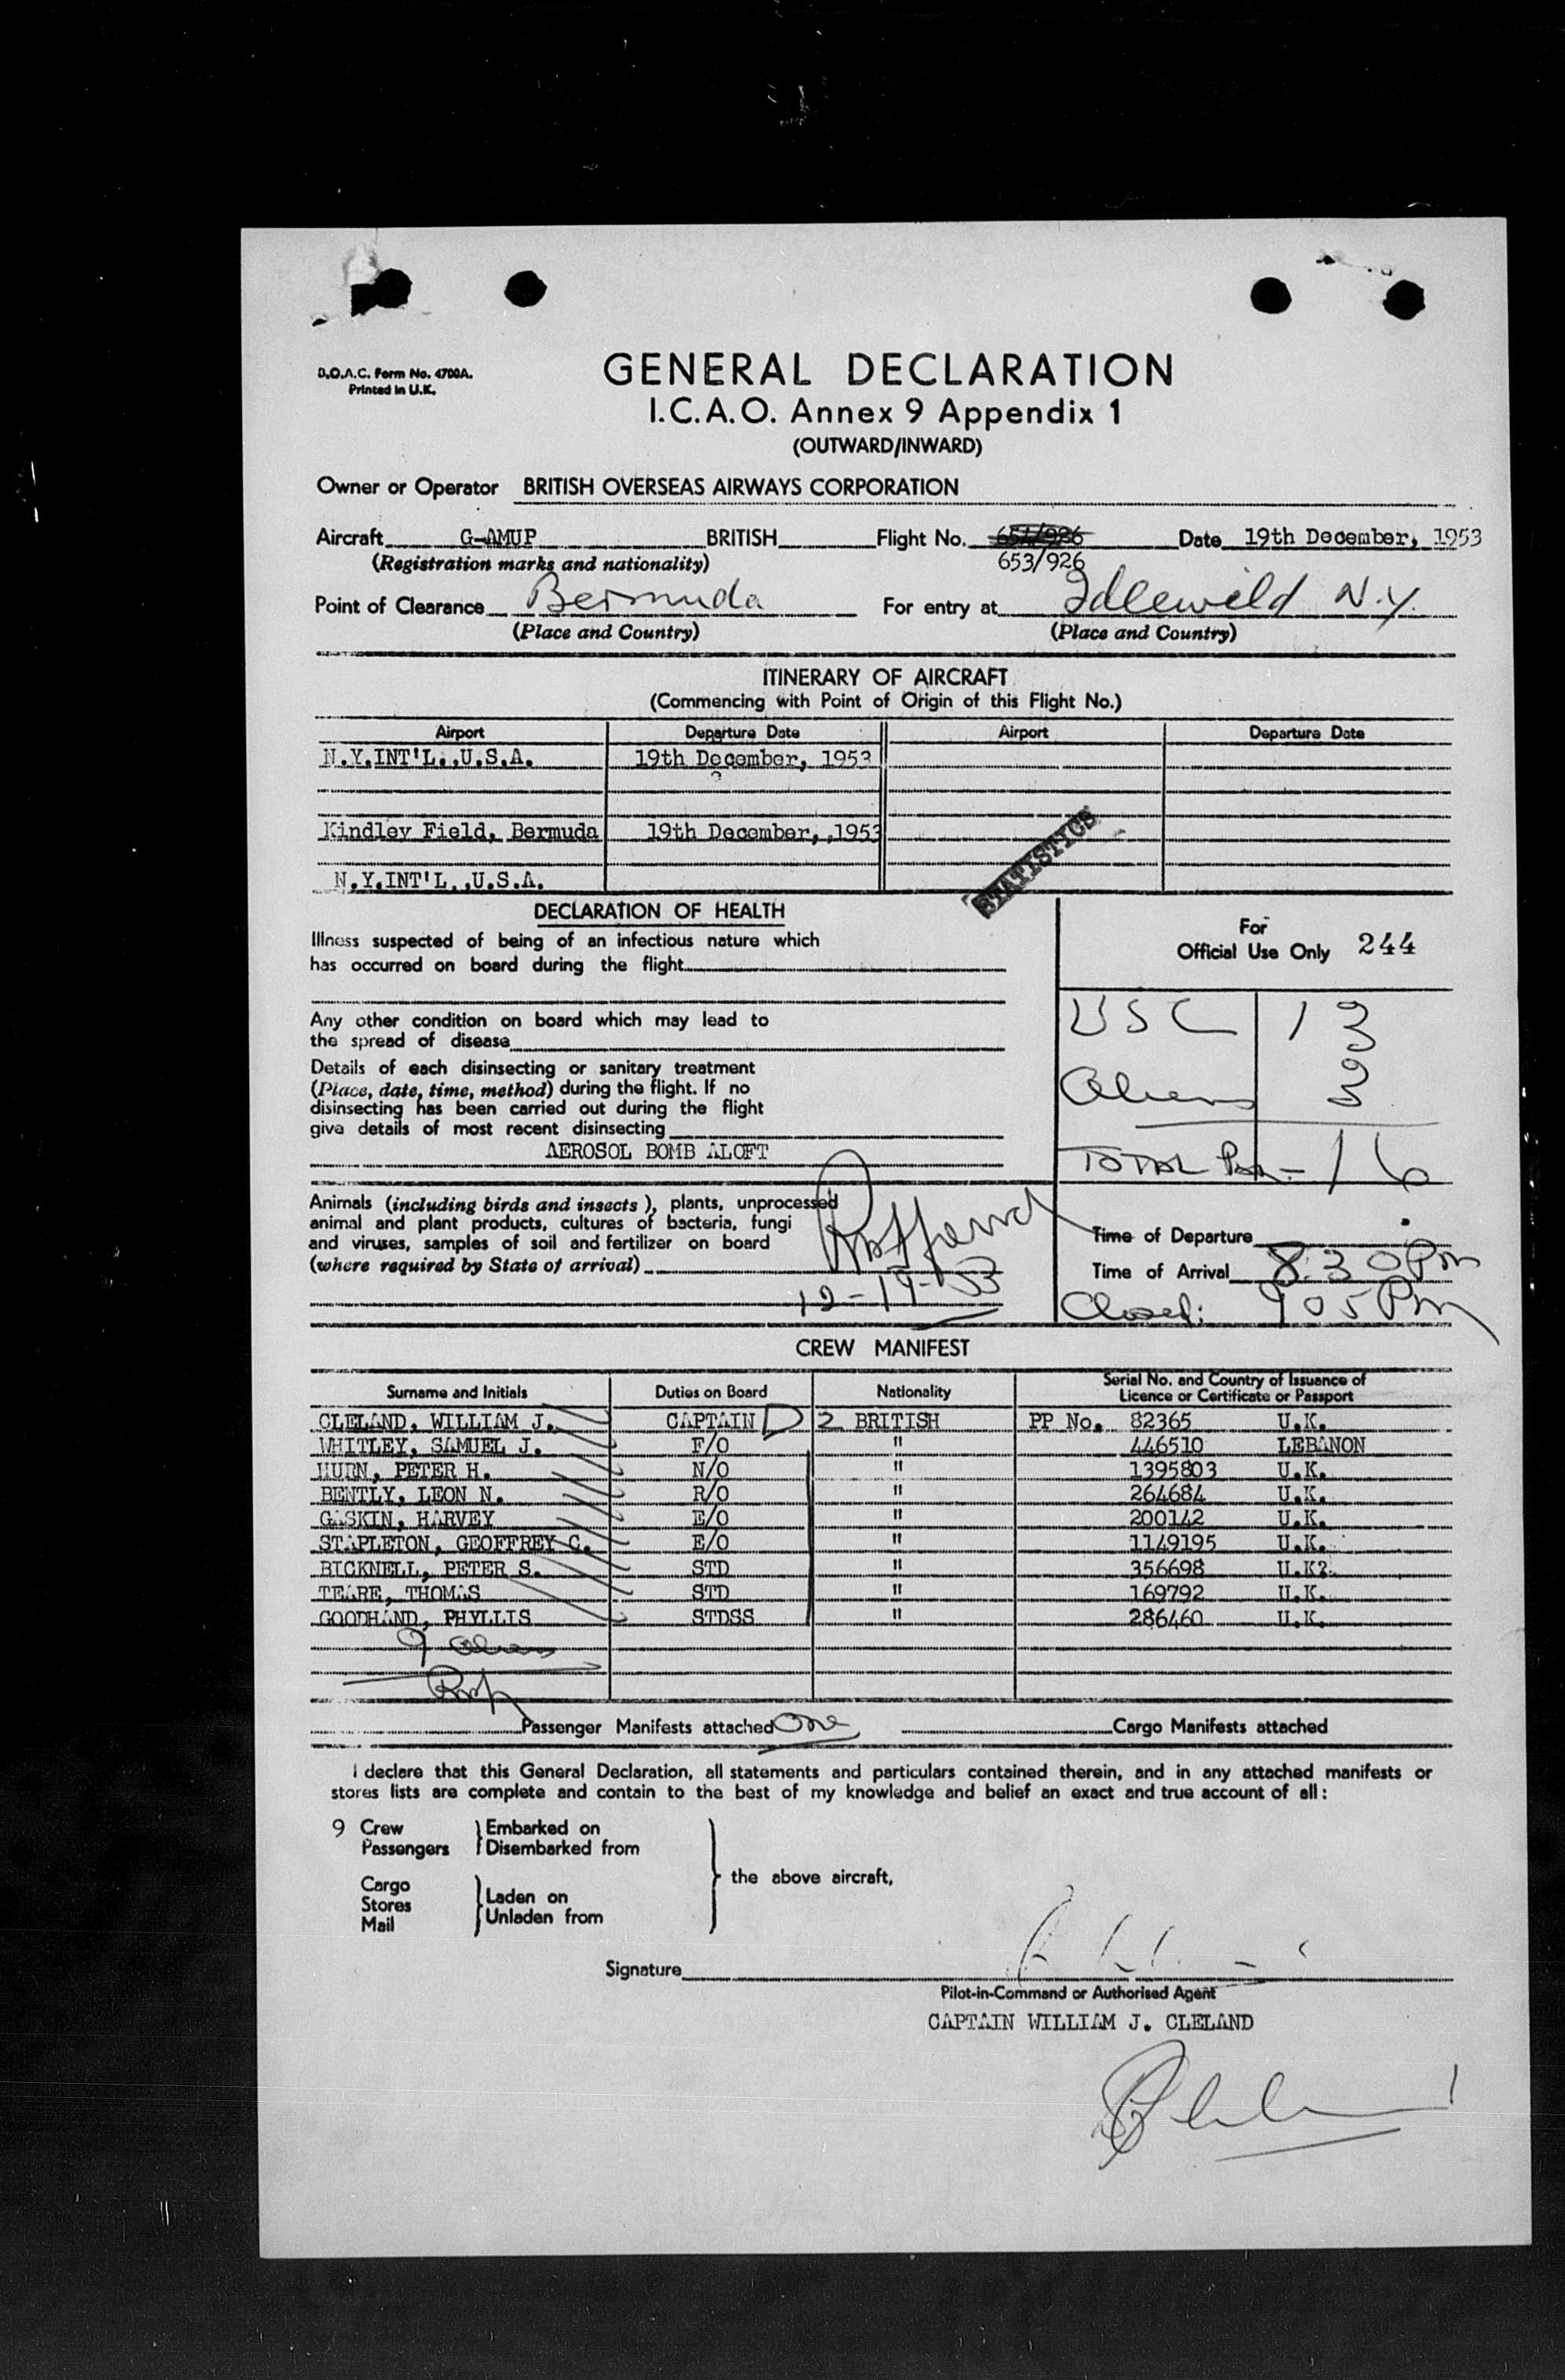 B.O.A.C. Form No. 4700A.
Printed in U.K.
GENERAL DECLARATION
I.C.A.O. Annex 9 Appendix 1
(OUTWARD/INWARD)
Owner or Operator BRITISH OVERSEAS AIRWAYS CORPORATION
Aircraft G-AMUP BRITISH Flight No. 651/926 Date 19th December, 1953
(Registration marks and nationality) 653/926
Point of Clearance Bermuda For entry at Idlewild N.Y.
(Place and Country) (Place and Country)
ITINERARY OF AIRCRAFT
(Commencing with Point of Origin of this Flight No.)
Airport Departure Date Airport Departure Date
N.Y.INT'L.,U.S.A. 19th December, 1953
Kindley Field, Bermuda 19th December, ,1953
N.Y.INT'L.,U.S.A.
STATISTICS
DECLARATION OF HEALTH
Illness suspected of being of an infectious nature which
has occurred on board during the flight
Any other condition on board which may lead to
the spread of disease
Details of each disinsecting or sanitary treatment
(Place, date, time, method) during the flight. If no
disinsecting has been carried out during the flight
give details of most recent disinsecting
AEROSOL BOMB ALOFT
Animals (including birds and insects), plants, unprocessed
animal and plant products, cultures of bacteria, fungi
and viruses, samples of soil and fertilizer on board
(where required by State of arrival)
12-19-53
For
Official Use Only 244
USC 13
Aliens 3
TOTAL - 16
Time of Departure
Time of Arrival 8:30 Pm
Closed: 905 Pm
CREW MANIFEST
Surname and Initials Duties on Board Nationality Serial No. and Country of Issuance of
Licence or Certificate or Passport
CLELAND, WILLIAM J. CAPTAIN D 2 BRITISH PP No. 82365 U.K.
WHITLEY, SAMUEL J. F/O " 446510 LEBANON
HURN, PETER H. N/O " 1395803 U.K.
BENTLY, LEON N. R/O " 264684 U.K.
GASKIN, HARVEY E/O " 200142 U.K.
STAPLETON, GEOFFREY C. E/O " 1149195 U.K.
BICKNELL, PETER S. STD " 356698 U.K?.
TEARE, THOMAS STD " 169792 U.K.
GOODHAND, PHYLLIS STDSS " 286460 U.K.
9 Aliens
Passenger Manifests attached One Cargo Manifests attached
I declare that this General Declaration, all statements and particulars contained therein, and in any attached manifests or
stores lists are complete and contain to the best of my knowledge and belief an exact and true account of all:
9 Crew Embarked on
Passengers Disembarked from
the above aircraft,
Cargo
Stores Laden on
Mail Unladen from
Signature
Pilot-in-Command or Authorised Agent
CAPTAIN WILLIAM J. CLELAND